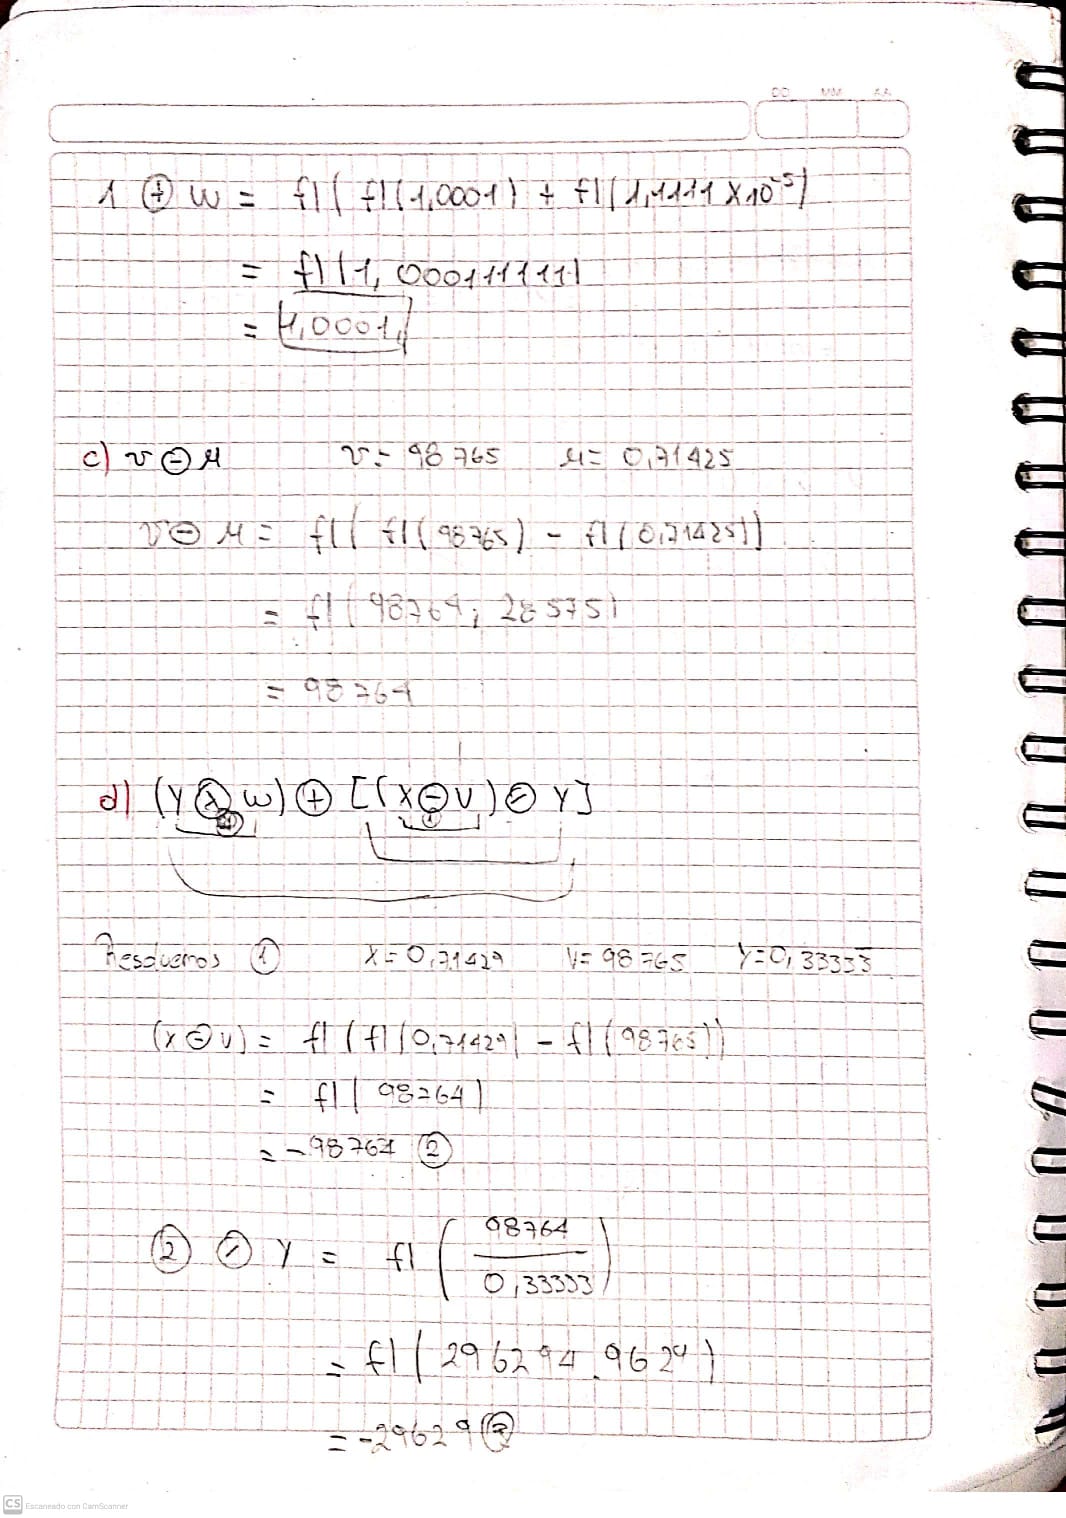 DD MM AA
1 ⊕ w = fl( fl(1,0001) + fl(1,1111 x 10⁻⁵)
= fl(1,0001111111)
= 1,0001
c) v ⊖ μ v = 98765 μ = 0,71425
v ⊖ μ = fl( fl(98765) - fl(0,71425))
= fl(98764, 28575)
= 98764
d) (Y ⊗ w) ⊕ [(X ⊖ v) ⊘ Y]
Resolvemos ① X = 0,71429 V = 98765 Y = 0,33333
(X ⊖ v) = fl( fl(0,71429) - fl(98765))
= fl( 98764)
= -98764 ②
② ⊘ Y = fl( 98764
0,33333 )
= fl( 296294.9624)
= -29629 ③
CS Escaneado con CamScanner